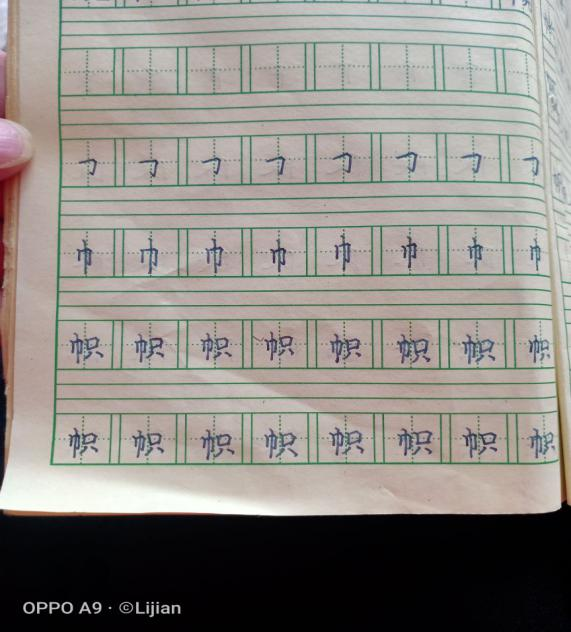 ㇆ ㇆ ㇆ ㇆ ㇆ ㇆ ㇆ ㇆
巾 巾 巾 巾 巾 巾 巾 巾
帜 帜 帜 帜 帜 帜 帜 帜
帜 帜 帜 帜 帜 帜 帜 帜
OPPO A9 · ©Lijian